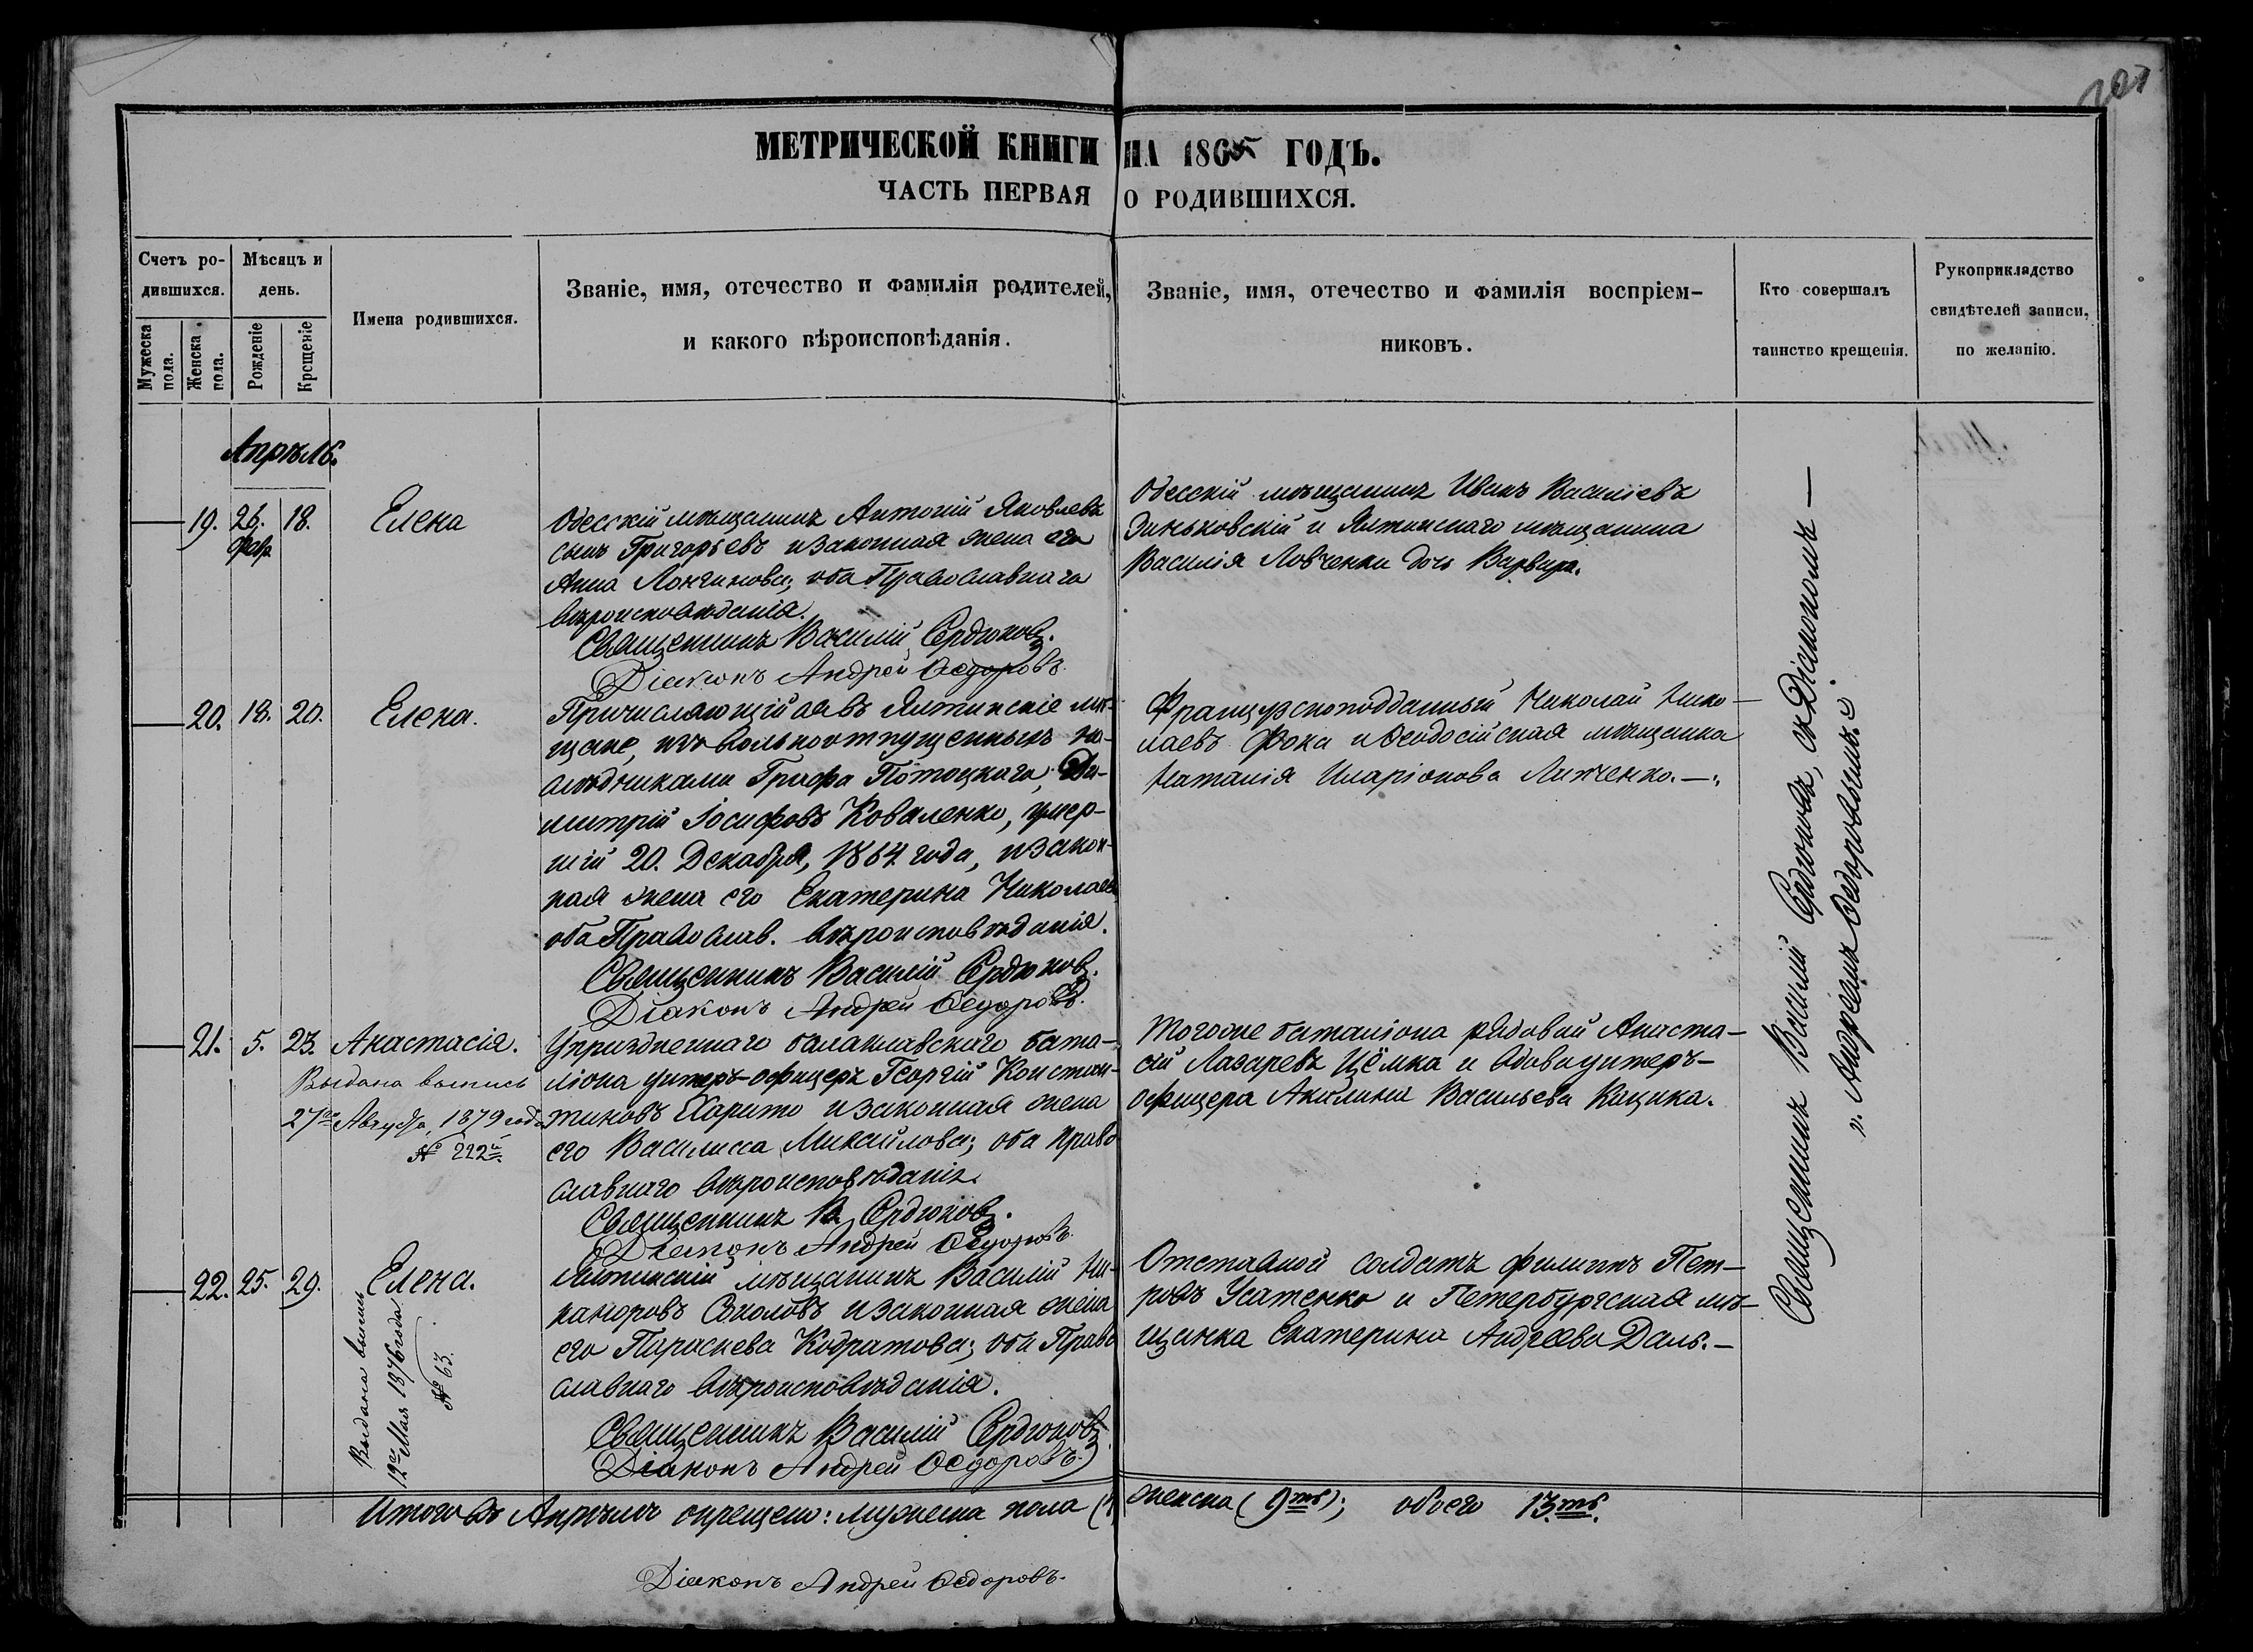 201
МЕТРИЧЕСКОЙ КНИГИ НА 1865 ГОДЪ.
ЧАСТЬ ПЕРВАЯ О РОДИВШИХСЯ.
Счетъ ро-
дившихся.
Мужеска пола.
Женска пола.
Мѣсяцъ и
день.
Рожденіе
Крещеніе
Имена родившихся.
Званіе, имя, отечество и фамилія родителей,
и какого вѣроисповѣданія.
Званіе, имя, отечество и фамилія воспріем-
никовъ.
Кто совершалъ
таинство крещенія.
Рукоприкладство
свидѣтелей записи,
по желанію.
Апрѣль.
19. 26. Февр. 18. Елена
Одесскій мѣщанинъ Антоній Яковлевъ
сынъ Григорьевъ и законная жена его
Анна Лонгинова; оба Православнаго
вѣроисповѣданія.
Священникъ Василій Сердюковъ.
Діаконъ Андрей Ѳедоровъ.
Одесскій мѣщанинъ Иванъ Василіевъ
Зиньковскій и Ялтинскаго мѣщанина
Василія Ловченки дочь Варвара.
20. 18. 20. Елена.
Причисляющійся въ Ялтинскіе мѣ-
щане, изъ вольноотпущенныхъ на-
слѣдниками Графа Потоцкаго, Ди-
митрій Іосифовъ Коваленко, умер-
шій 20. Декабря, 1864 года, и закон-
ная жена его Екатерина Николаева
оба Православ. вѣроисповѣданія.
Священникъ Василій Сердюковъ.
Діаконъ Андрей Ѳедоровъ.
Французскоподданный Николай Нико-
лаевъ Фока и Ѳеодосійская мѣщанка
Наталія Иларіонова Литченко.
21. 5. 23. Анастасія.
Выдана выпись
27го Августа, 1879 года
№ 222й
Упраздненнаго балаклавскаго бата-
ліона унтеръ-офицеръ Георгій Констан-
тиновъ Харито и законная жена
его Василисса Михайлова; оба право
славнаго вѣроисповѣданія.
Священникъ В. Сердюковъ.
Діаконъ Андрей Ѳедоровъ.
Тогоже баталіона рядовой Анаста-
сій Лазаревъ Цёмка и вдова унтеръ-
офицера Акилина Васильева Кацика.
22. 25. 29. Елена.
Выдана выпись
12го Мая 1876 года
№ 63.
Ялтинскій мѣщанинъ Василій Ни-
каноровъ Соколовъ и законная жена
его Параскева Кодратова; оба Право
славнаго вѣроисповѣданія.
Священникъ Василій Сердюковъ
Діаконъ Андрей Ѳедоровъ.
Отставной солдатъ Филиппъ Пет-
ровъ Усатенко и Петербургская мѣ-
щанка Екатерина Андреева Даль.
Священникъ Василій Сердюковъ, съ Діакономъ
Андреемъ Ѳедоровымъ
Итого въ Апрѣлѣ окрещено: мужеска пола (4 женска (9ть); обоего 13.ть.
Діаконъ Андрей Ѳедоровъ.